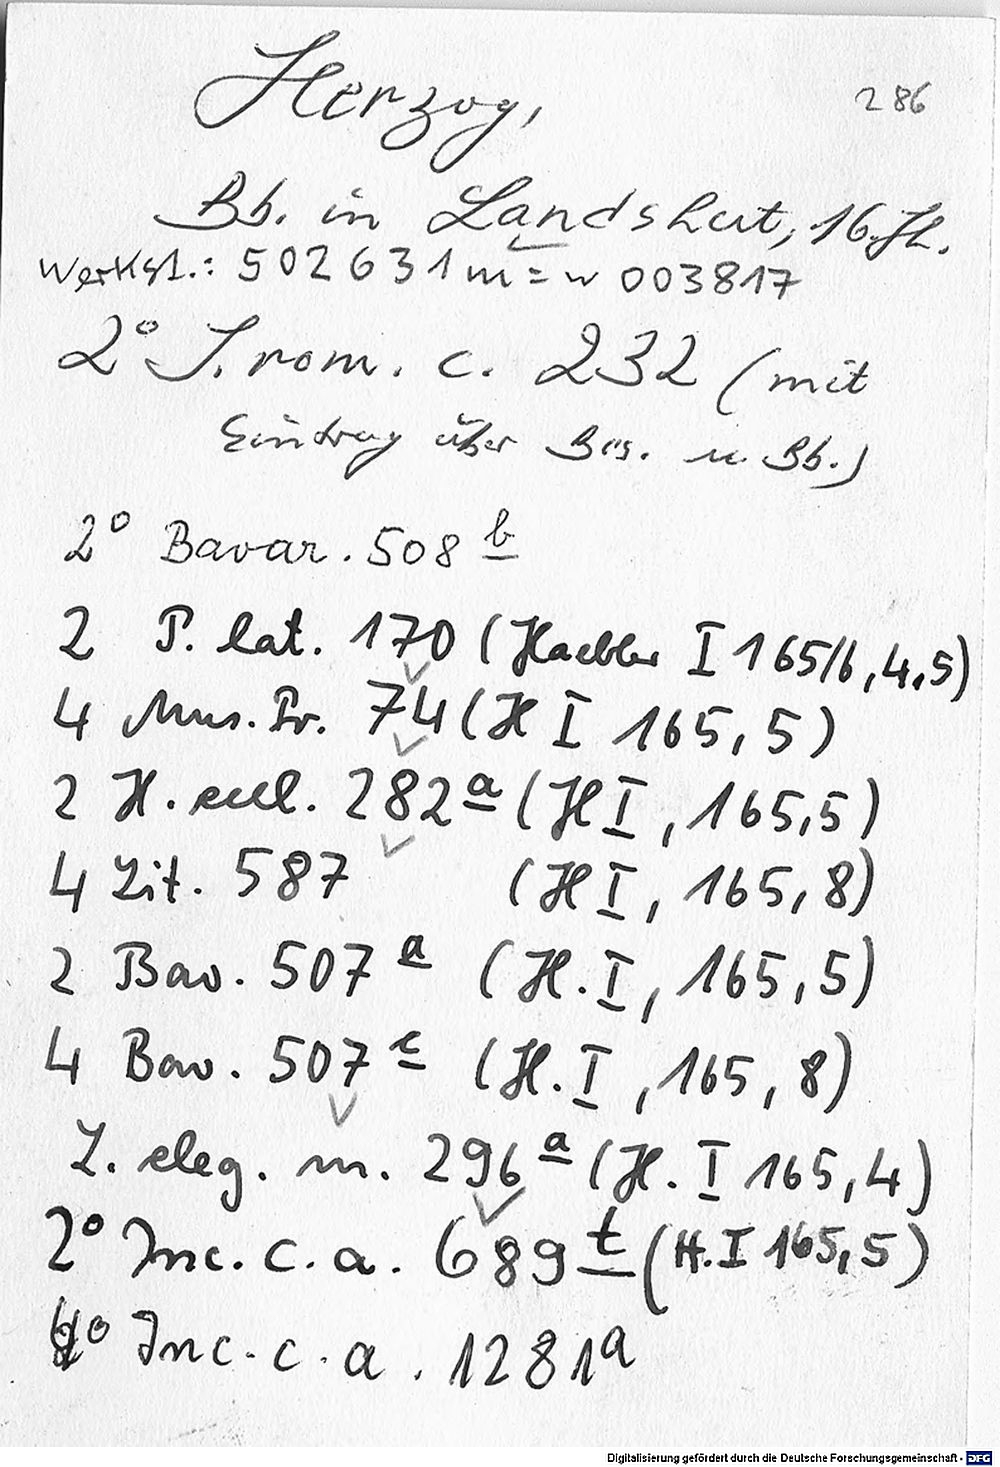 286
Herzog,
Bb. in Landshut, 16. Jh.
Werkst.: 502631m = w 003817
2° J. rom. c. 232 (mit
Eintrag über Bes. u. Bb.)
2° Bavar. 508 b
2 P. lat. 170 (Haebler I 165/6, 4, 5)
4 Mus. Pr. 74 (H I 165, 5)
2 H. eccl. 282 a (H I, 165,5)
4 Lit. 587 (H I, 165, 8)
2 Bav. 507 a (H. I, 165, 5)
4 Bav. 507 c (H. I, 165, 8)
L. eleg. m. 296 a (H. I 165, 4)
2° Inc. c. a. 689 t (H. I 165, 5)
4° Inc. c. a. 1281a
Digitalisierung gefördert durch die Deutsche Forschungsgemeinschaft - DFG